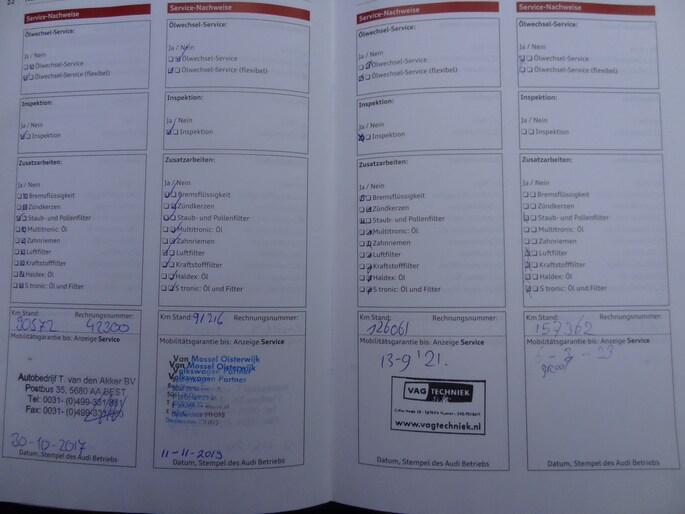 22
Service-Nachweise
Ölwechsel-Service:
Ja / Nein
Ölwechsel-Service
Ölwechsel-Service (flexibel)
Inspektion:
Ja / Nein
Inspektion
Zusatzarbeiten:
Ja / Nein
Bremsflüssigkeit
Zündkerzen
Staub- und Pollenfilter
Multitronic: Öl
Zahnriemen
Luftfilter
Kraftstofffilter
Haldex: Öl
S tronic: Öl und Filter
Km Stand: Rechnungsnummer:
30572 42300
Mobilitätsgarantie bis: Anzeige Service
Autobedrijf T. van den Akker BV
Postbus 35, 5680 AA BEST
Tel: 0031- (0)499-
Fax: 0031- (0)499-
30-10-2017
Datum, Stempel des Audi Betriebs
Service-Nachweise
Ölwechsel-Service:
Ja / Nein
Ölwechsel-Service
Ölwechsel-Service (flexibel)
Inspektion:
Ja / Nein
Inspektion
Zusatzarbeiten:
Ja / Nein
Bremsflüssigkeit
Zündkerzen
Staub- und Pollenfilter
Multitronic: Öl
Zahnriemen
Luftfilter
Kraftstofffilter
Haldex: Öl
S tronic: Öl und Filter
Km Stand: 91216 Rechnungsnummer:
Mobilitätsgarantie bis: Anzeige Service
Van Mossel Oisterwijk
Van Mossel Oisterwijk
Volkswagen Partner
Volkswagen Partner
11-11-2019
Datum, Stempel des Audi Betriebs
Service-Nachweise
Ölwechsel-Service:
Ja / Nein
Ölwechsel-Service
Ölwechsel-Service (flexibel)
Inspektion:
Ja / Nein
Inspektion
Zusatzarbeiten:
Ja / Nein
Bremsflüssigkeit
Zündkerzen
Staub- und Pollenfilter
Multitronic: Öl
Zahnriemen
Luftfilter
Kraftstofffilter
Haldex: Öl
S tronic: Öl und Filter
Km Stand: Rechnungsnummer:
126061
Mobilitätsgarantie bis: Anzeige Service
13-9 '21.
VAG TECHNIEK
www.vagtechniek.nl
Datum, Stempel des Audi Betriebs
Service-Nachweise
Ölwechsel-Service:
Ja / Nein
Ölwechsel-Service
Ölwechsel-Service (flexibel)
Inspektion:
Ja / Nein
Inspektion
Zusatzarbeiten:
Ja / Nein
Bremsflüssigkeit
Zündkerzen
Staub- und Pollenfilter
Multitronic: Öl
Zahnriemen
Luftfilter
Kraftstofffilter
Haldex: Öl
S tronic: Öl und Filter
Km Stand: Rechnungsnummer:
157362
Mobilitätsgarantie bis: Anzeige Service
Datum, Stempel des Audi Betriebs